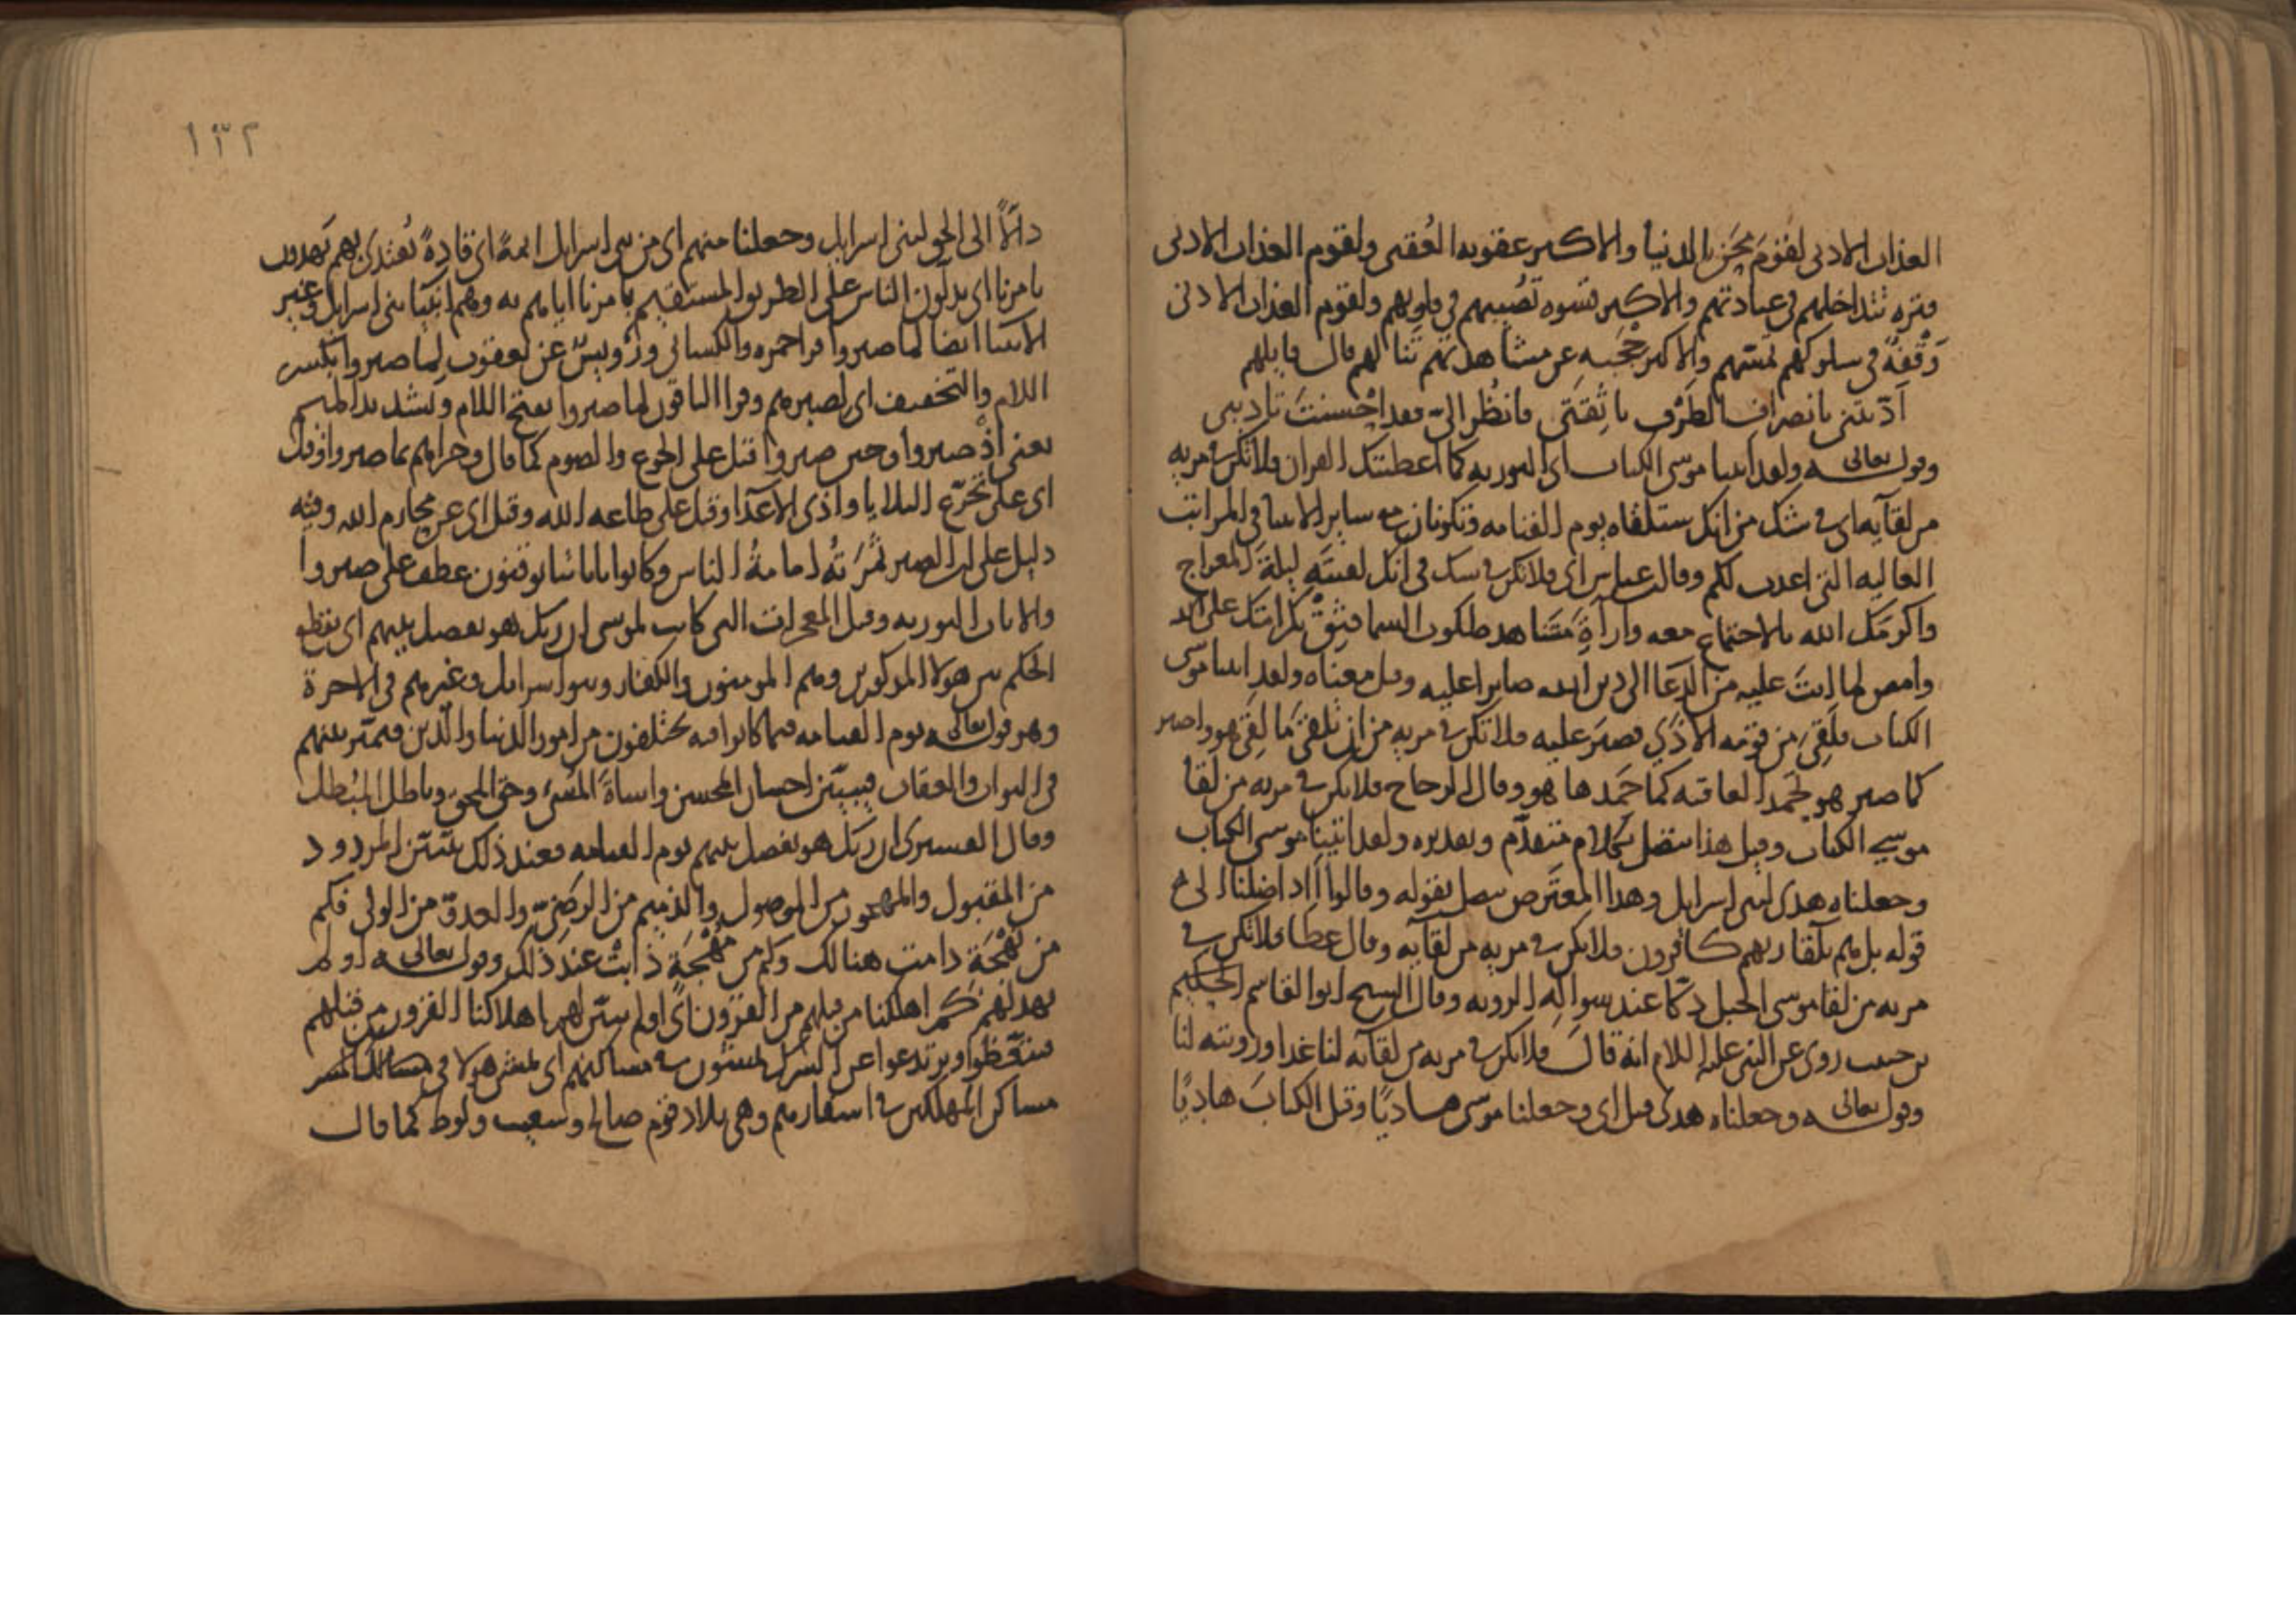 العذاب الادنى لقوم محن الدنيا والاكبر عقوبه العقبى ولقوم العذاب الادنى
فتره تتداخلهم فى عبادتهم والاكبر قسوه تصيبهم فى قلوبهم ولقوم العذاب الادنى
وقفة فى سلوكهم تمسهم والاكبر حجبه عن مشاهدتهم تنالهم قال قايلهم
ادبتنى بانصراف الطرف يا ثقتى فانظر الىّ فقد احسنت تاديبى
وقوله تعالى ولقد اتينا موسى الكتاب اى التوريه كما اعطيتك القران فلا تكن فى مريه
من لقايه اى فى شك من انك ستلقاه يوم القيامه وتكونان مع ساير الانبيا فى المراتب
العاليه التى اعدت لكم وقال عباس اى فلا تكن فى شك فى انك لقيته ليلة المعراج
واكرمك الله بالاجتماع معه واراة مشاهد ملكوت السما فثق بكرامتك على الله
وامض لما انت عليه من الدعا الى دين الله صابرا عليه وقيل معناه ولقد اتينا موسى
الكتاب فلقى من قومه الاذى فصبر عليه فلا تكن فى مريه من ان تلقى ما لقى هو واصبر
كما صبر هو لحمد العاقبه كما حمدها هو وقال الزجاج فلا تكن فى مريه من لقا
موسى الكتاب وقيل هذا متصل بكلام متقدّم وتقديره ولقد اتينا موسى الكتاب
وجعلناه هدى لبنى اسرايل وهذا المعترض متصل بقوله وقالوا أاذا ضللنا الى
قوله بل هم بلقا ربهم كافرون فلا تكن فى مريه من لقايه وقال عطا فلا تكن فى
مريه من لقا موسى الجبل دكّا عند سواله الرويه وقال الشيخ ابوالقاسم الحكيم
بن حبيب روى عن النبى عليه السلام انه قال فلا تكن فى مريه من لقايه لنا غدا ورويته لنا
وقوله تعالى وجعلناه هدى قيل اى وجعلنا موسى هاديًا وقيل الكتاب هاديًا
١٣٢
دالّاً الى الحق لبنى اسرايل وجعلنا منهم اى من بنى اسرايل ايمة اى قادة يقتدى بهم يهدون
بامرنا اى يدلون الناس على الطريق المستقيم بامرنا اياهم به وهم انبيا بنى اسرايل وغير
الانبيا ايضا لما صبروا قرا حمزه والكسائى ورويس عن يعقوب لما صبروا بكسر
اللام والتخفيف اى لصبرهم وقرا الباقون لما صبروا بفتح اللام وتشديد الميم
يعنى اذ صبروا وحين صبروا قيل على الجوع والصوم كما قال وجزاهم بما صبروا وقيل
اى على تجرّع البلايا واذى الاعدا وقيل على طاعه الله وقيل اى عن محارم الله وفيه
دليل على ان الصبر ثمرته امامة الناس وكانوا باياتنا يوقنون عطف على صبروا
والايات التوريه وقيل المعجزات التى كانت لموسى ان ربك هو يفصل بينهم اى يقطع
الحكم بين هولا المذكورين وهم المومنون والكفار وبنو اسرايل وغيرهم فى الاخرة
وهو قوله تعالى يوم القيامه فيما كانوا فيه يختلفون من امور الدنيا والدين فيميّز بينهم
فى الثواب والعقاب فيبيّن احسان المحسن واساة المسى وحق المحق وباطل المبطل
وقال القشيرى ان ربك هو يفصل بينهم يوم القيامه فعند ذلك يتبيّن المردود
من المقبول والمهجور من الموصول والذميم من الرضىّ والعدوّ من الولى فكم
من بهجة دامت هنالك وكم من مهجة ذابت عند ذلك وقوله تعالى اولم
يهد لهم كم اهلكنا من قبلهم من القرون اى اولم يبيّن لهم اهلاكنا القرون من قبلهم
فيتّعظوا ويرتدعوا عن الشرك يمشون فى مساكنهم اى يمشى هولا فى
مساكن المهلكين فى اسفارهم وهى بلاد قوم صالح وشعيب ولوط كما قال